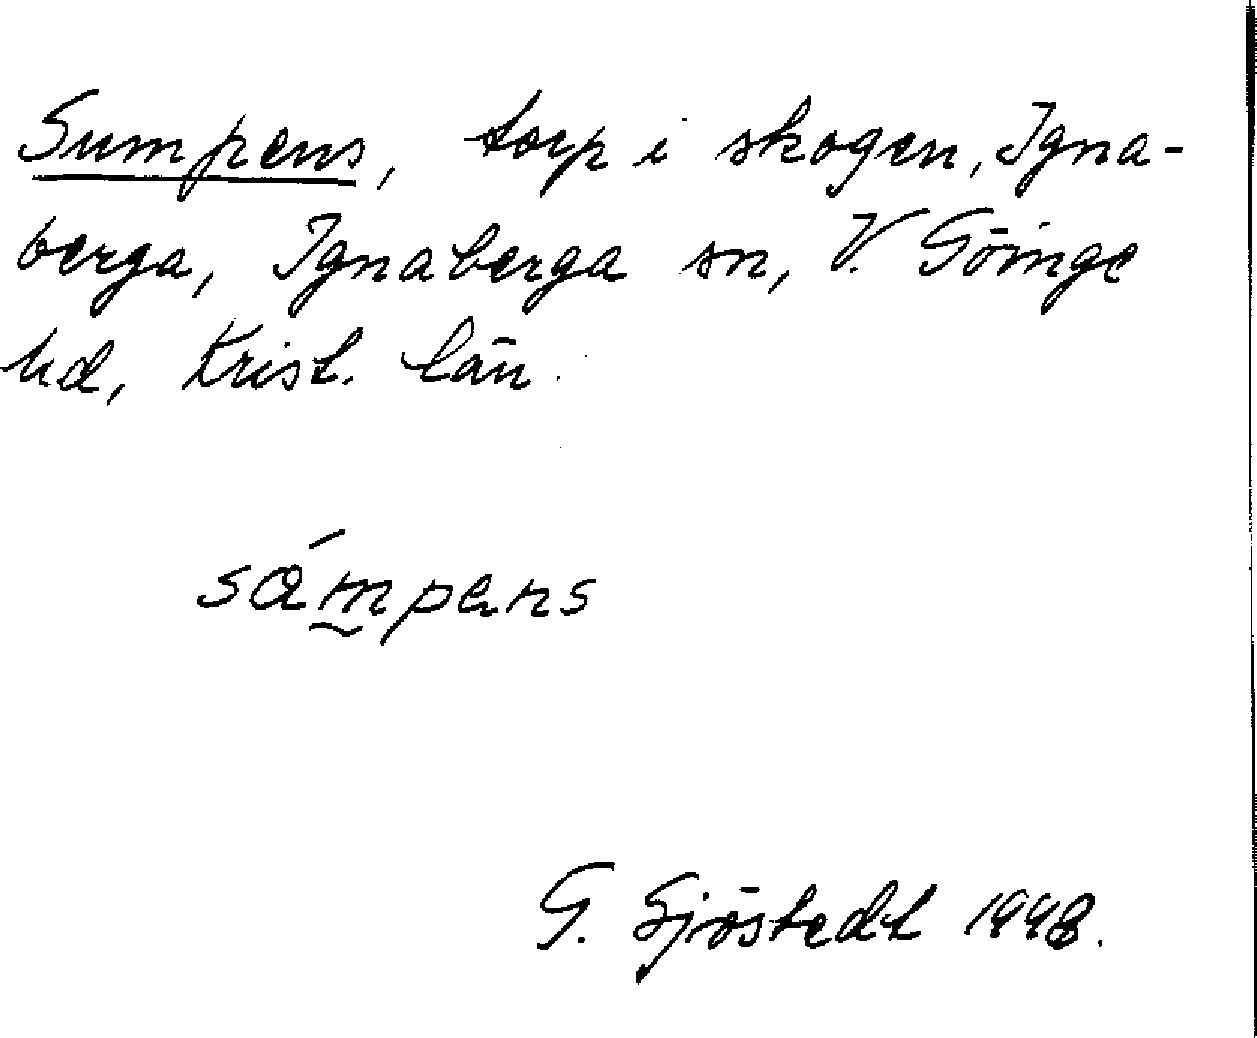 Sumpens, torp i skogen, Igna-
berga, Ignaberga sn, V. Göinge
hd, Krist. län.
sámpens
G. Sjöstedt 1948.